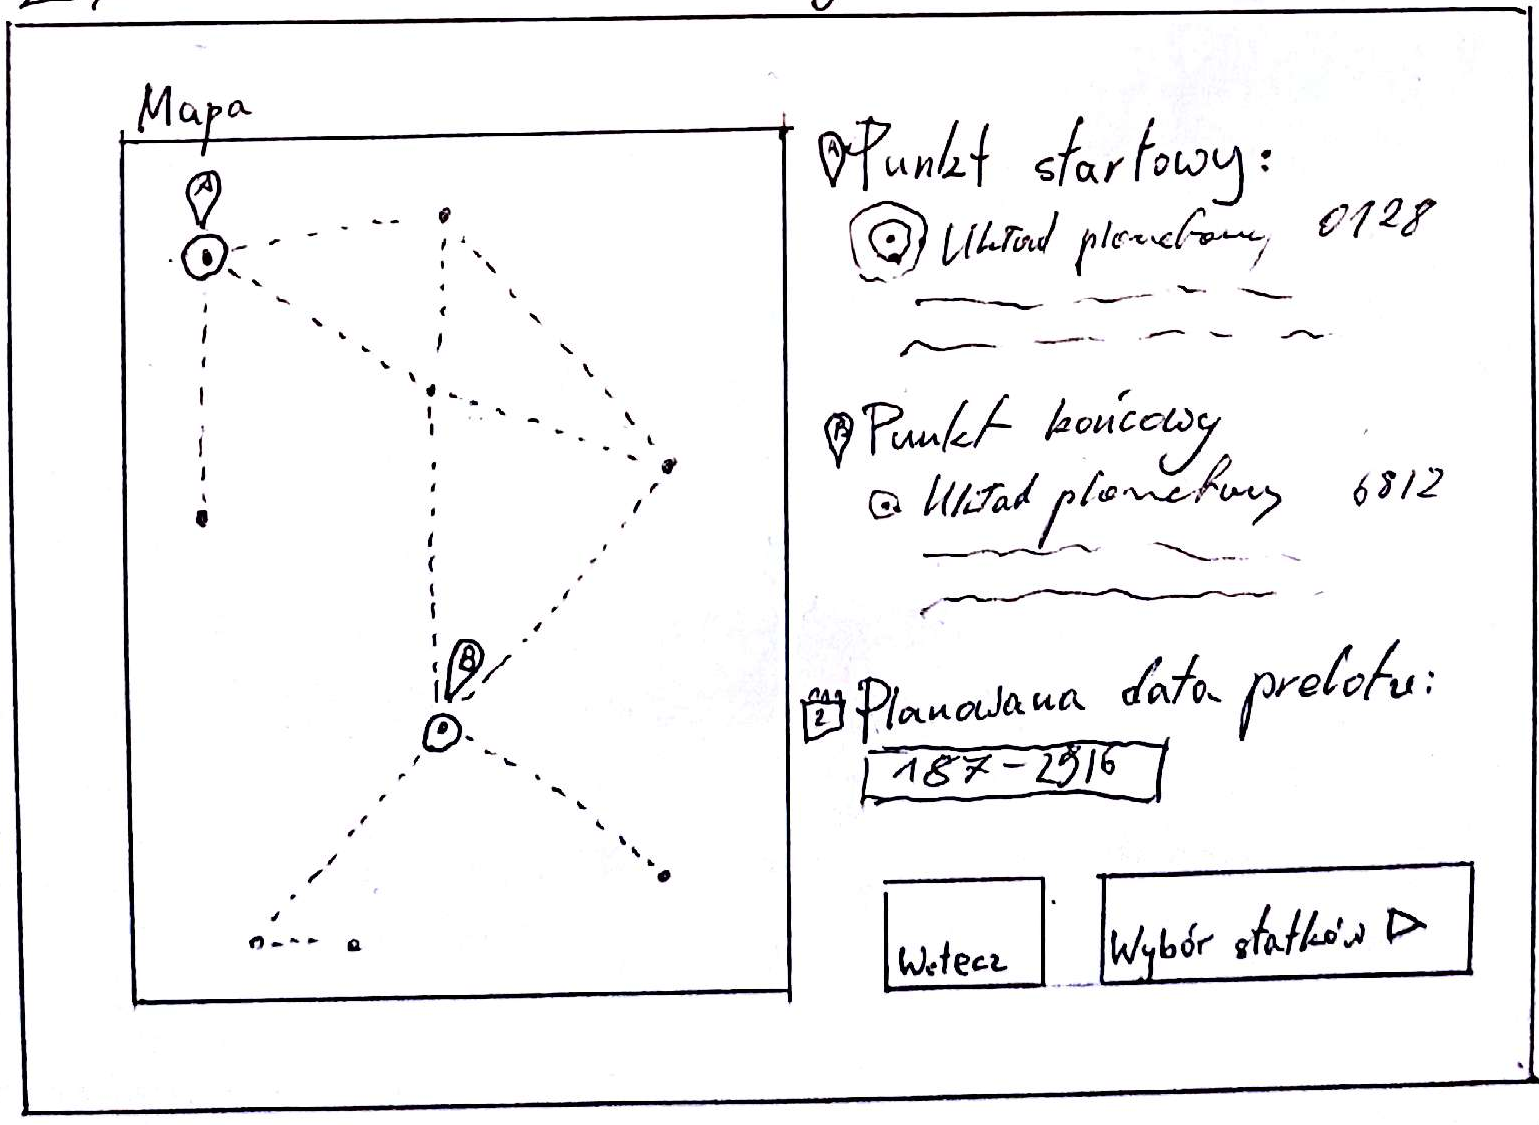 Mapa
A
A Punkt startowy:
Układ planetarny 0128
B Punkt końcowy
Układ planetarny 6812
B
2 Planowana data prelotu:
187-2916
Wstecz
Wybór statków